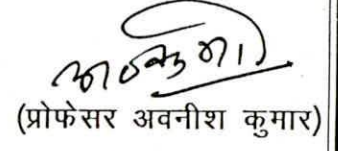 (प्रोफेसर अवनीश कुमार)